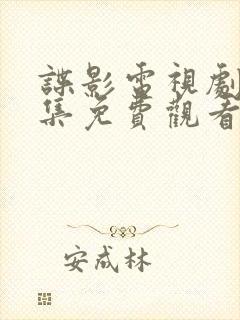 諜影雷視劇
集免費觀看
安成林